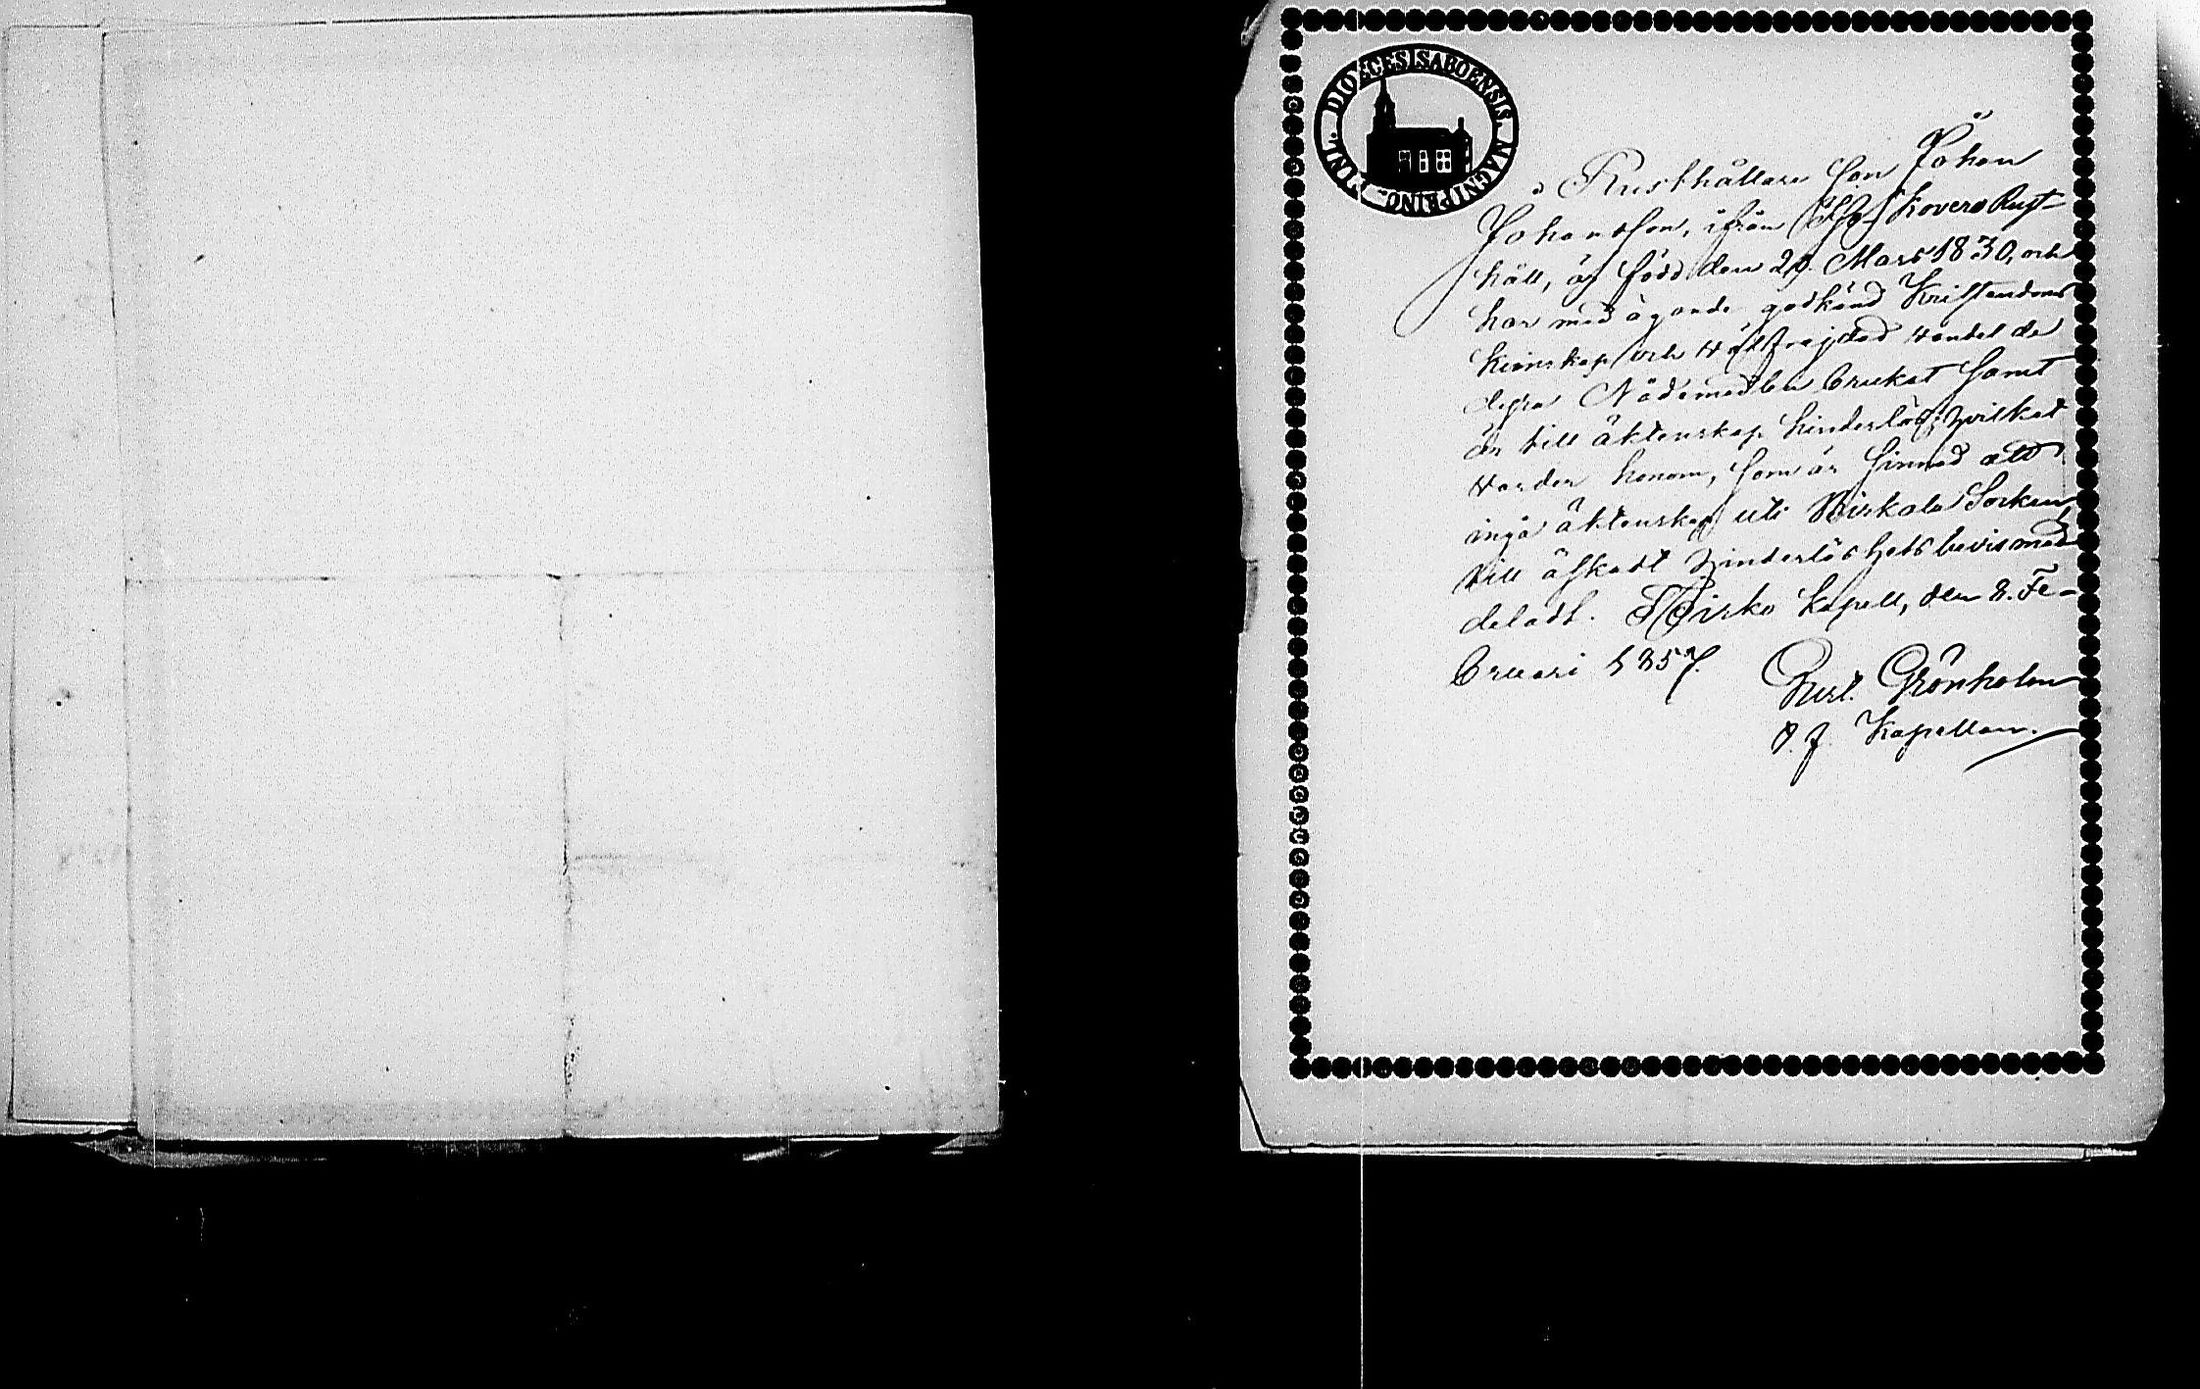 DIOECESIS ABOENSIS. MAGNI PRINC. FINL.
Rusthållare Son Johan
Johansson, ifrån Kovero Rust-
håll, är född den 29. Mars 1830, och
har med ägande godkänd Kristendoms
kunskap och välfrejdad vandel de
dyra Nådemedlen brukat samt
är till äktenskap hinderlös; hvilket
varder honom, som är sinnad att
ingå äktenskap uti Birkala Socken
till äskadt hinderlöshets bevis med-
deladt. Kapell, den 8. Fe-
bruari 1857.
Gust. Grönholm
v. f. Kapellan.